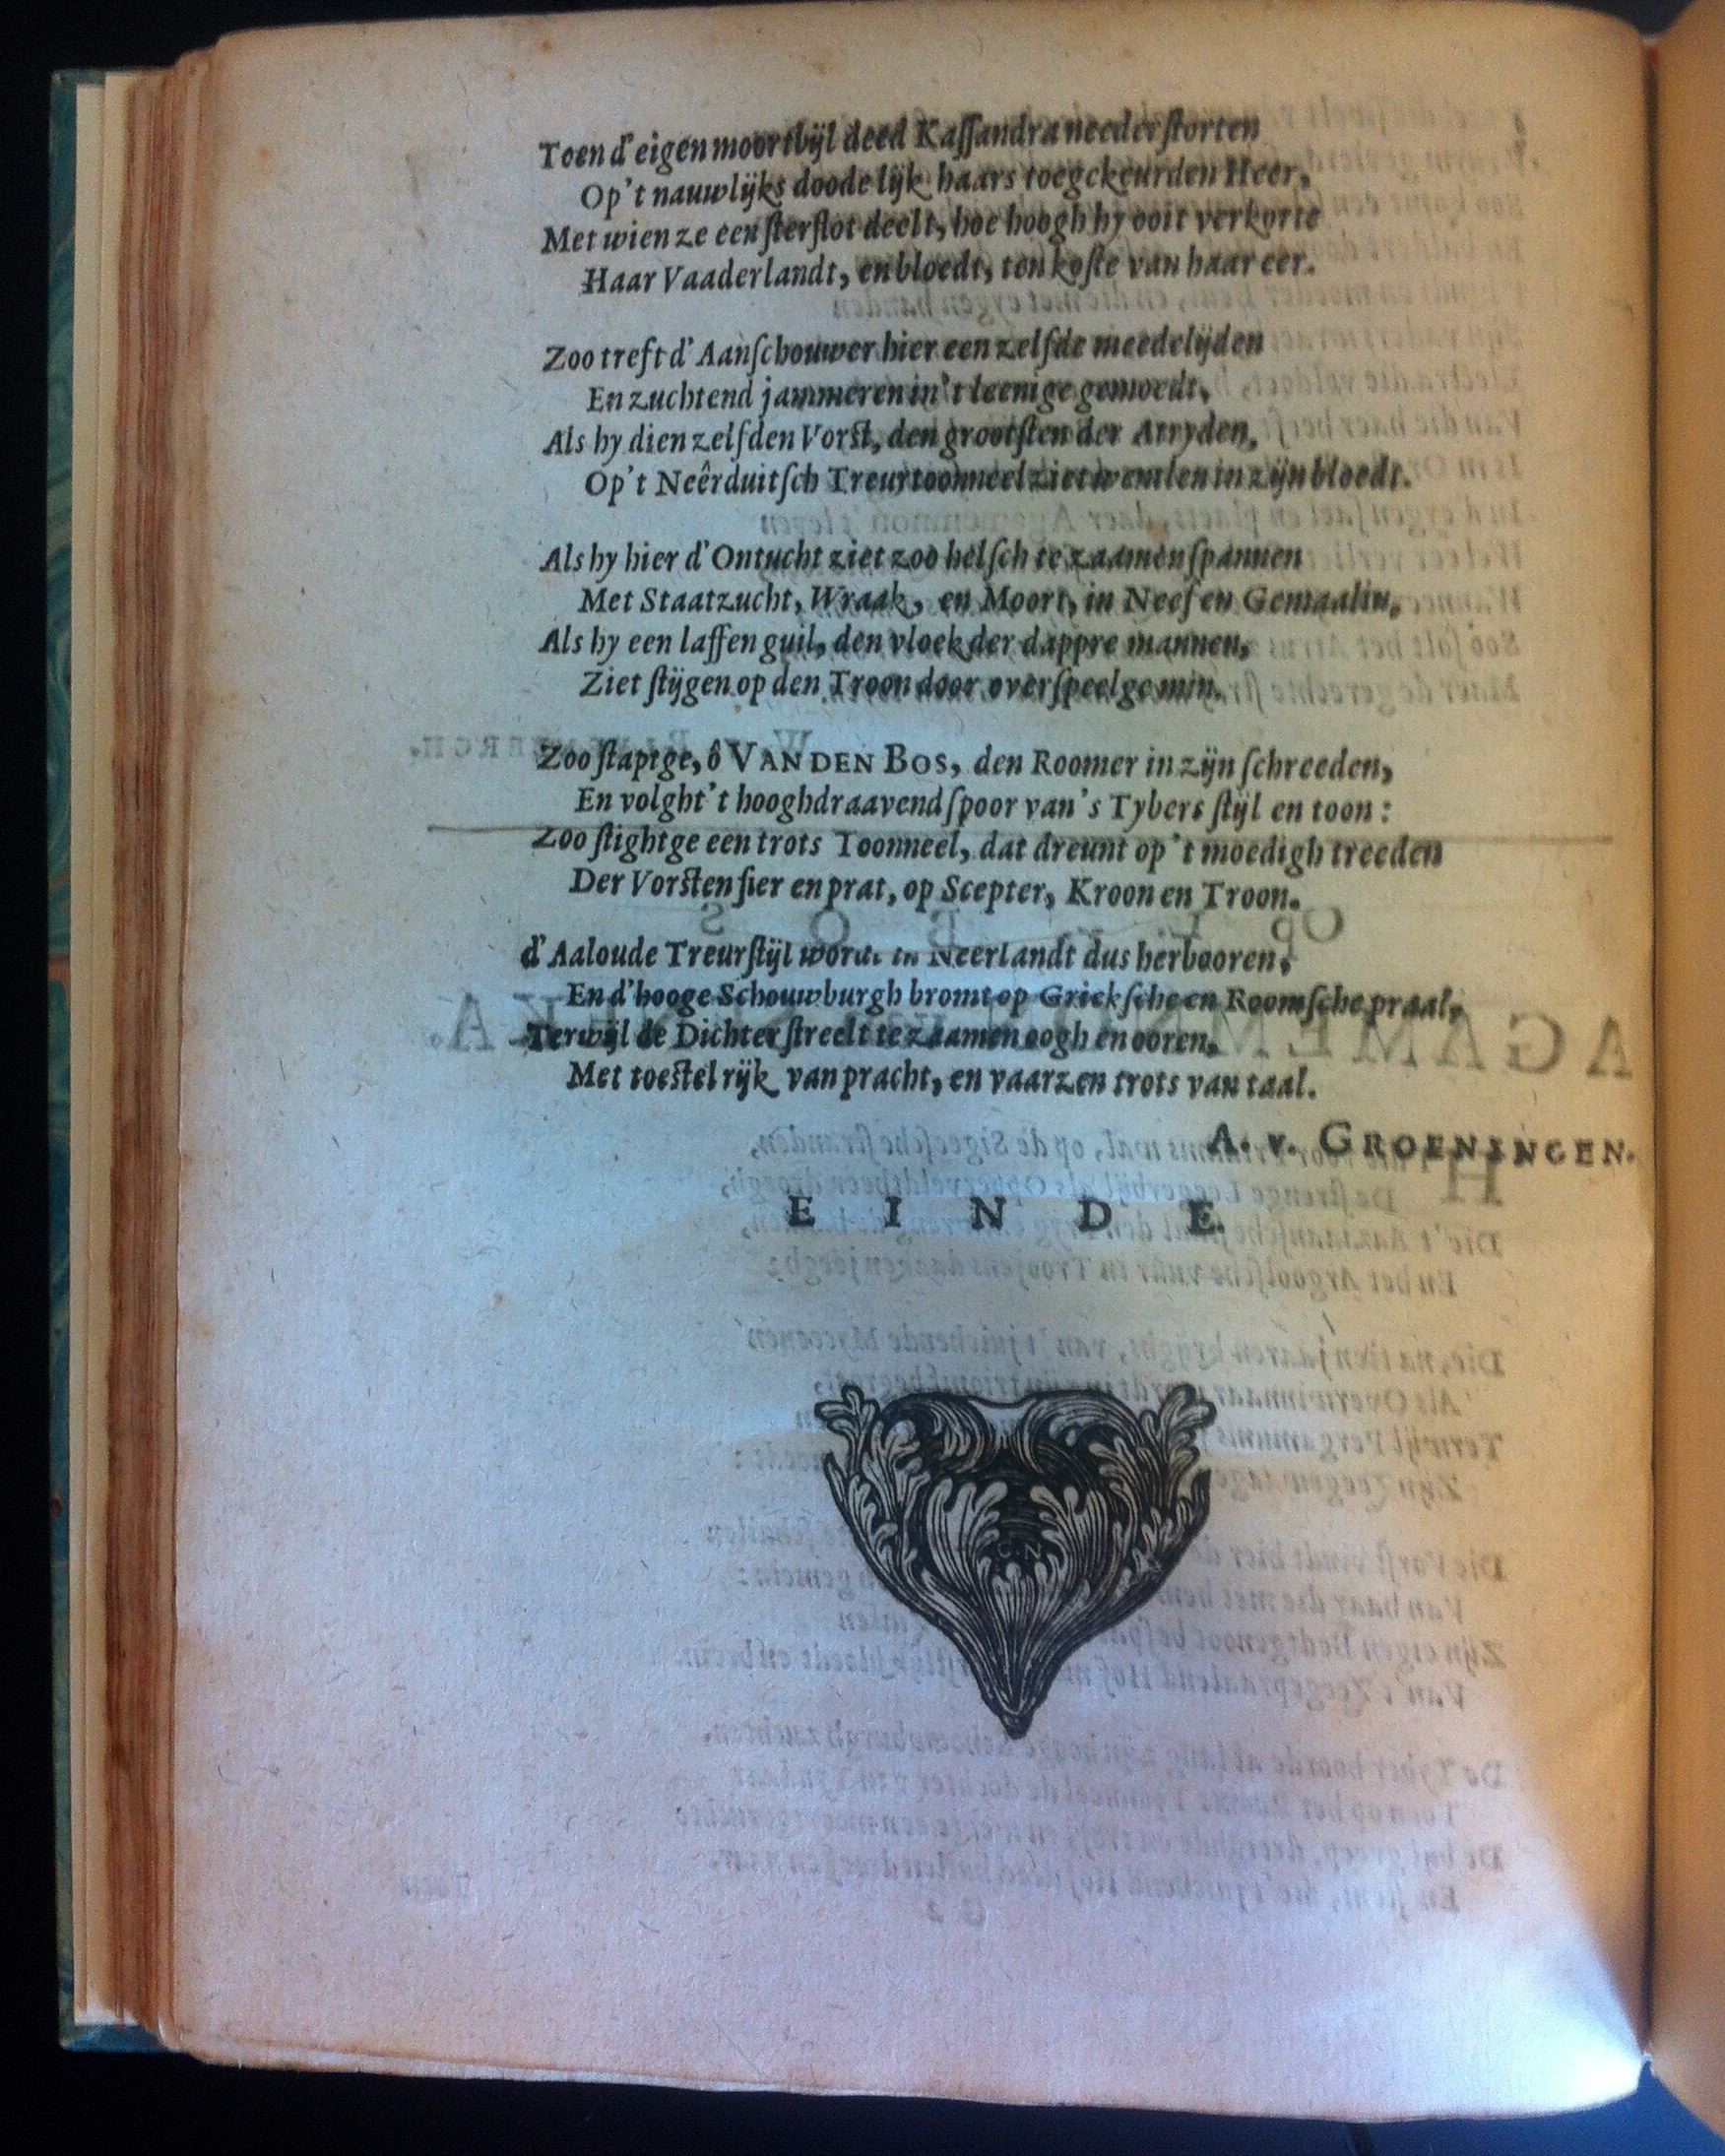 Toen d'eigen moortbijl deed Kaſſandra neederſtorten
Op't nauwlijks doode lijk haars toegekeurden Heer,
Met wien ze een ſterflot deelt, hoe hoogh hy ooit verkorte
Haar Vaaderlandt, en bloedt, ten koſte van haar eer.
Zoo treft d'Aanſchouwer hier een zelfde meedelijden
En zuchtend jammeren in't teenige gemoedt,
Als hy dien zelfden Vorſt, den grootſten der Atryden,
Op't Neêrduitſch Treurtoonneel ziet wemlen in zijn bloedt.
Als hy hier d'Ontucht ziet zoo helſch te zaamen ſpannen
Met Staatzucht, Wraak, en Moort, in Neef en Gemaalin,
Als hy een laffen guil, den vloek der dappre mannen,
Ziet ſtijgen op den Troon door overſpeelge min.
Zoo ſtaptge, ô VAN DEN BOS, den Roomer in zijn ſchreeden,
En volght't hooghdraavend ſpoor van's Tybers ſtijl en toon:
Zoo ſtightge een trots Toonneel, dat dreunt op't moedigh treeden
Der Vorſten fier en prat, op Scepter, Kroon en Troon.
d'Aaloude Treurſtijl wordt in Neerlandt dus herbooren,
En d'hooge Schouwburgh bromt op Griekſche en Roomſche praal,
Terwijl de Dichter ſtreelt te zaamen oogh en ooren,
Met toeſtel rijk van pracht, en vaarzen trots van taal.
A. v. GROENINGEN.
EINDE.